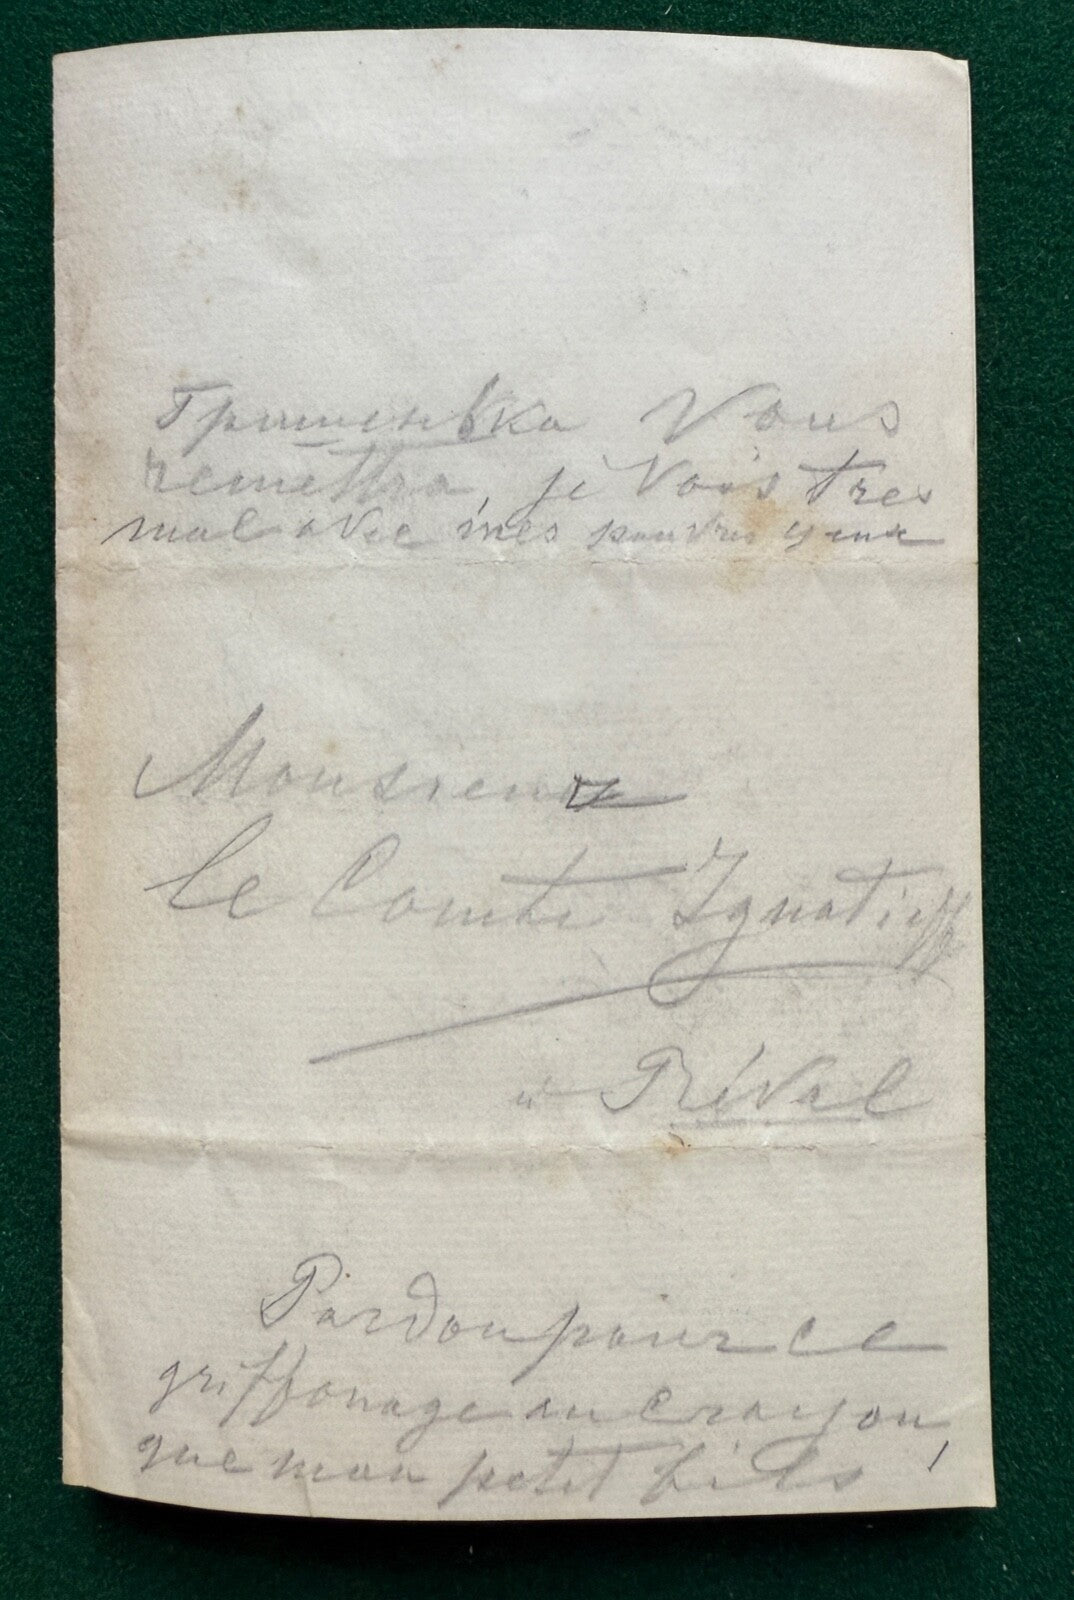 Гришенька Vous
remettra, je vois tres
mal avec mes pauvres yeux
Monsieur
le Comte Ignatieff
à Réval
Pardon pour ce
griffonage au crayon,
que mon petit fils